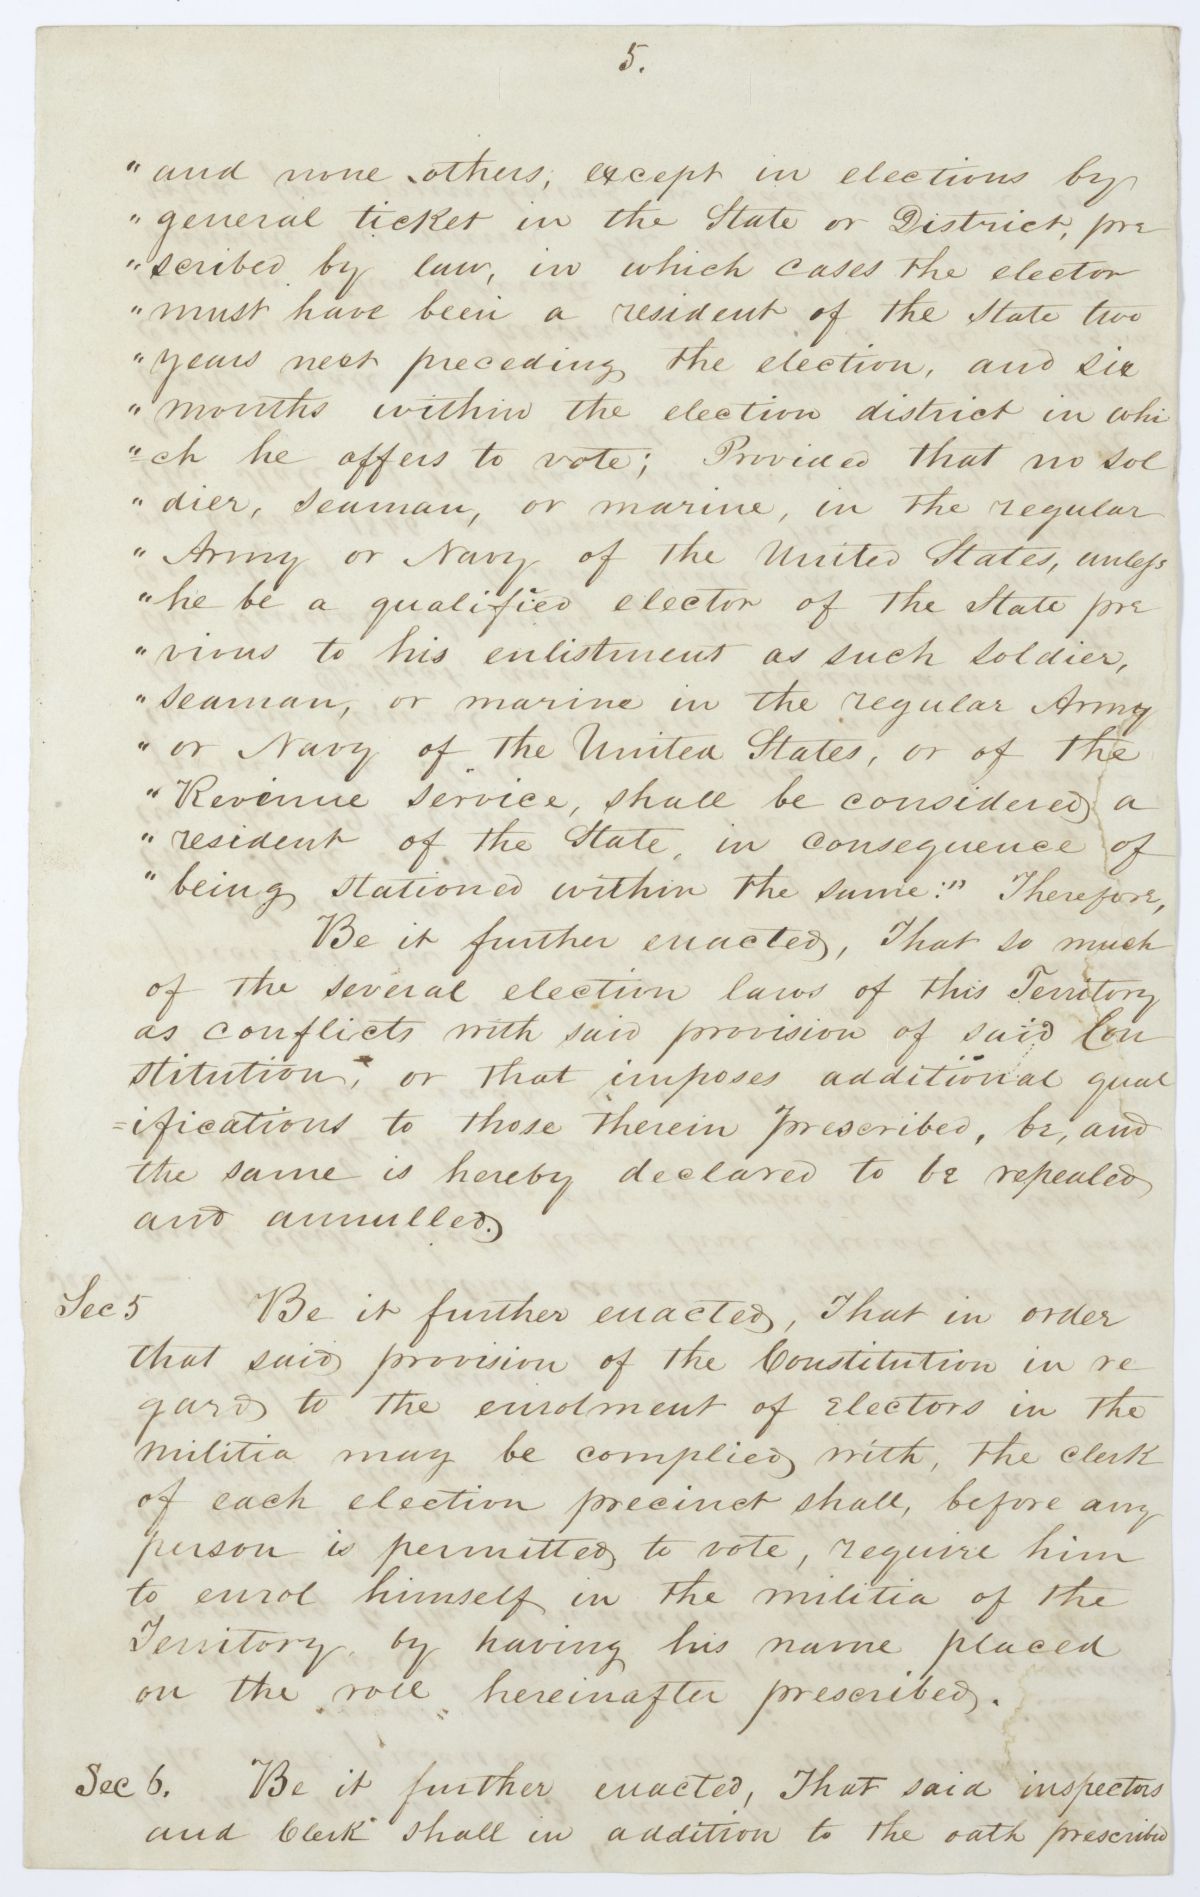 5.
"and none others, except in elections by
"general ticket in the State or District, pre
"scribed by law, in which cases the elector
"must have been a resident of the State two
"years next preceding the election, and six
"months within the election district in whi
"ch he offers to vote; Provided that no sol
"dier, seaman, or marine, in the regular
"Army or Navy of the United States, unless
"he be a qualified elector of the State pre
"vious to his enlistment as such soldier,
"seaman, or marine in the regular Army
"or Navy of the United States, or of the
"Revenue service, shall be considered a
"resident of the State, in consequence of
"being stationed within the same:" Therefore,
Be it further enacted, That so much
of the several election laws of this Territory
as conflicts with said provision of said Con
stitution, or that imposes additional qual
=ifications to those therein prescribed, be, and
the same is hereby declared to be repealed
and annulled.
Sec 5 Be it further enacted, That in order
that said provision of the Constitution in re
gard to the enrolment of Electors in the
militia may be complied with, the clerk
of each election precinct shall, before any
person is permitted to vote, require him
to enrol himself in the militia of the
Territory, by having his name placed
on the roll hereinafter prescribed.
Sec 6. Be it further enacted, That said inspectors
and Clerk shall in addition to the oath prescribed